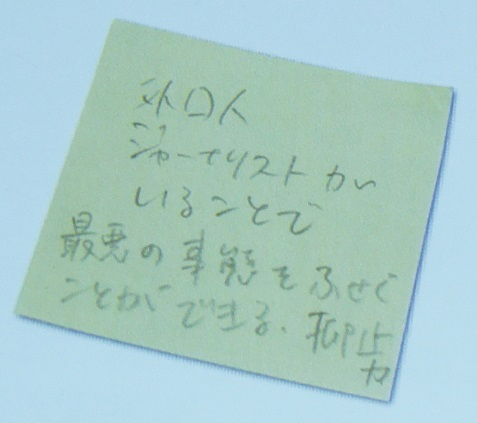 外口人
ジャーナリストが
いることで
最悪の事態をふせぐ
ことができる、抑止
力